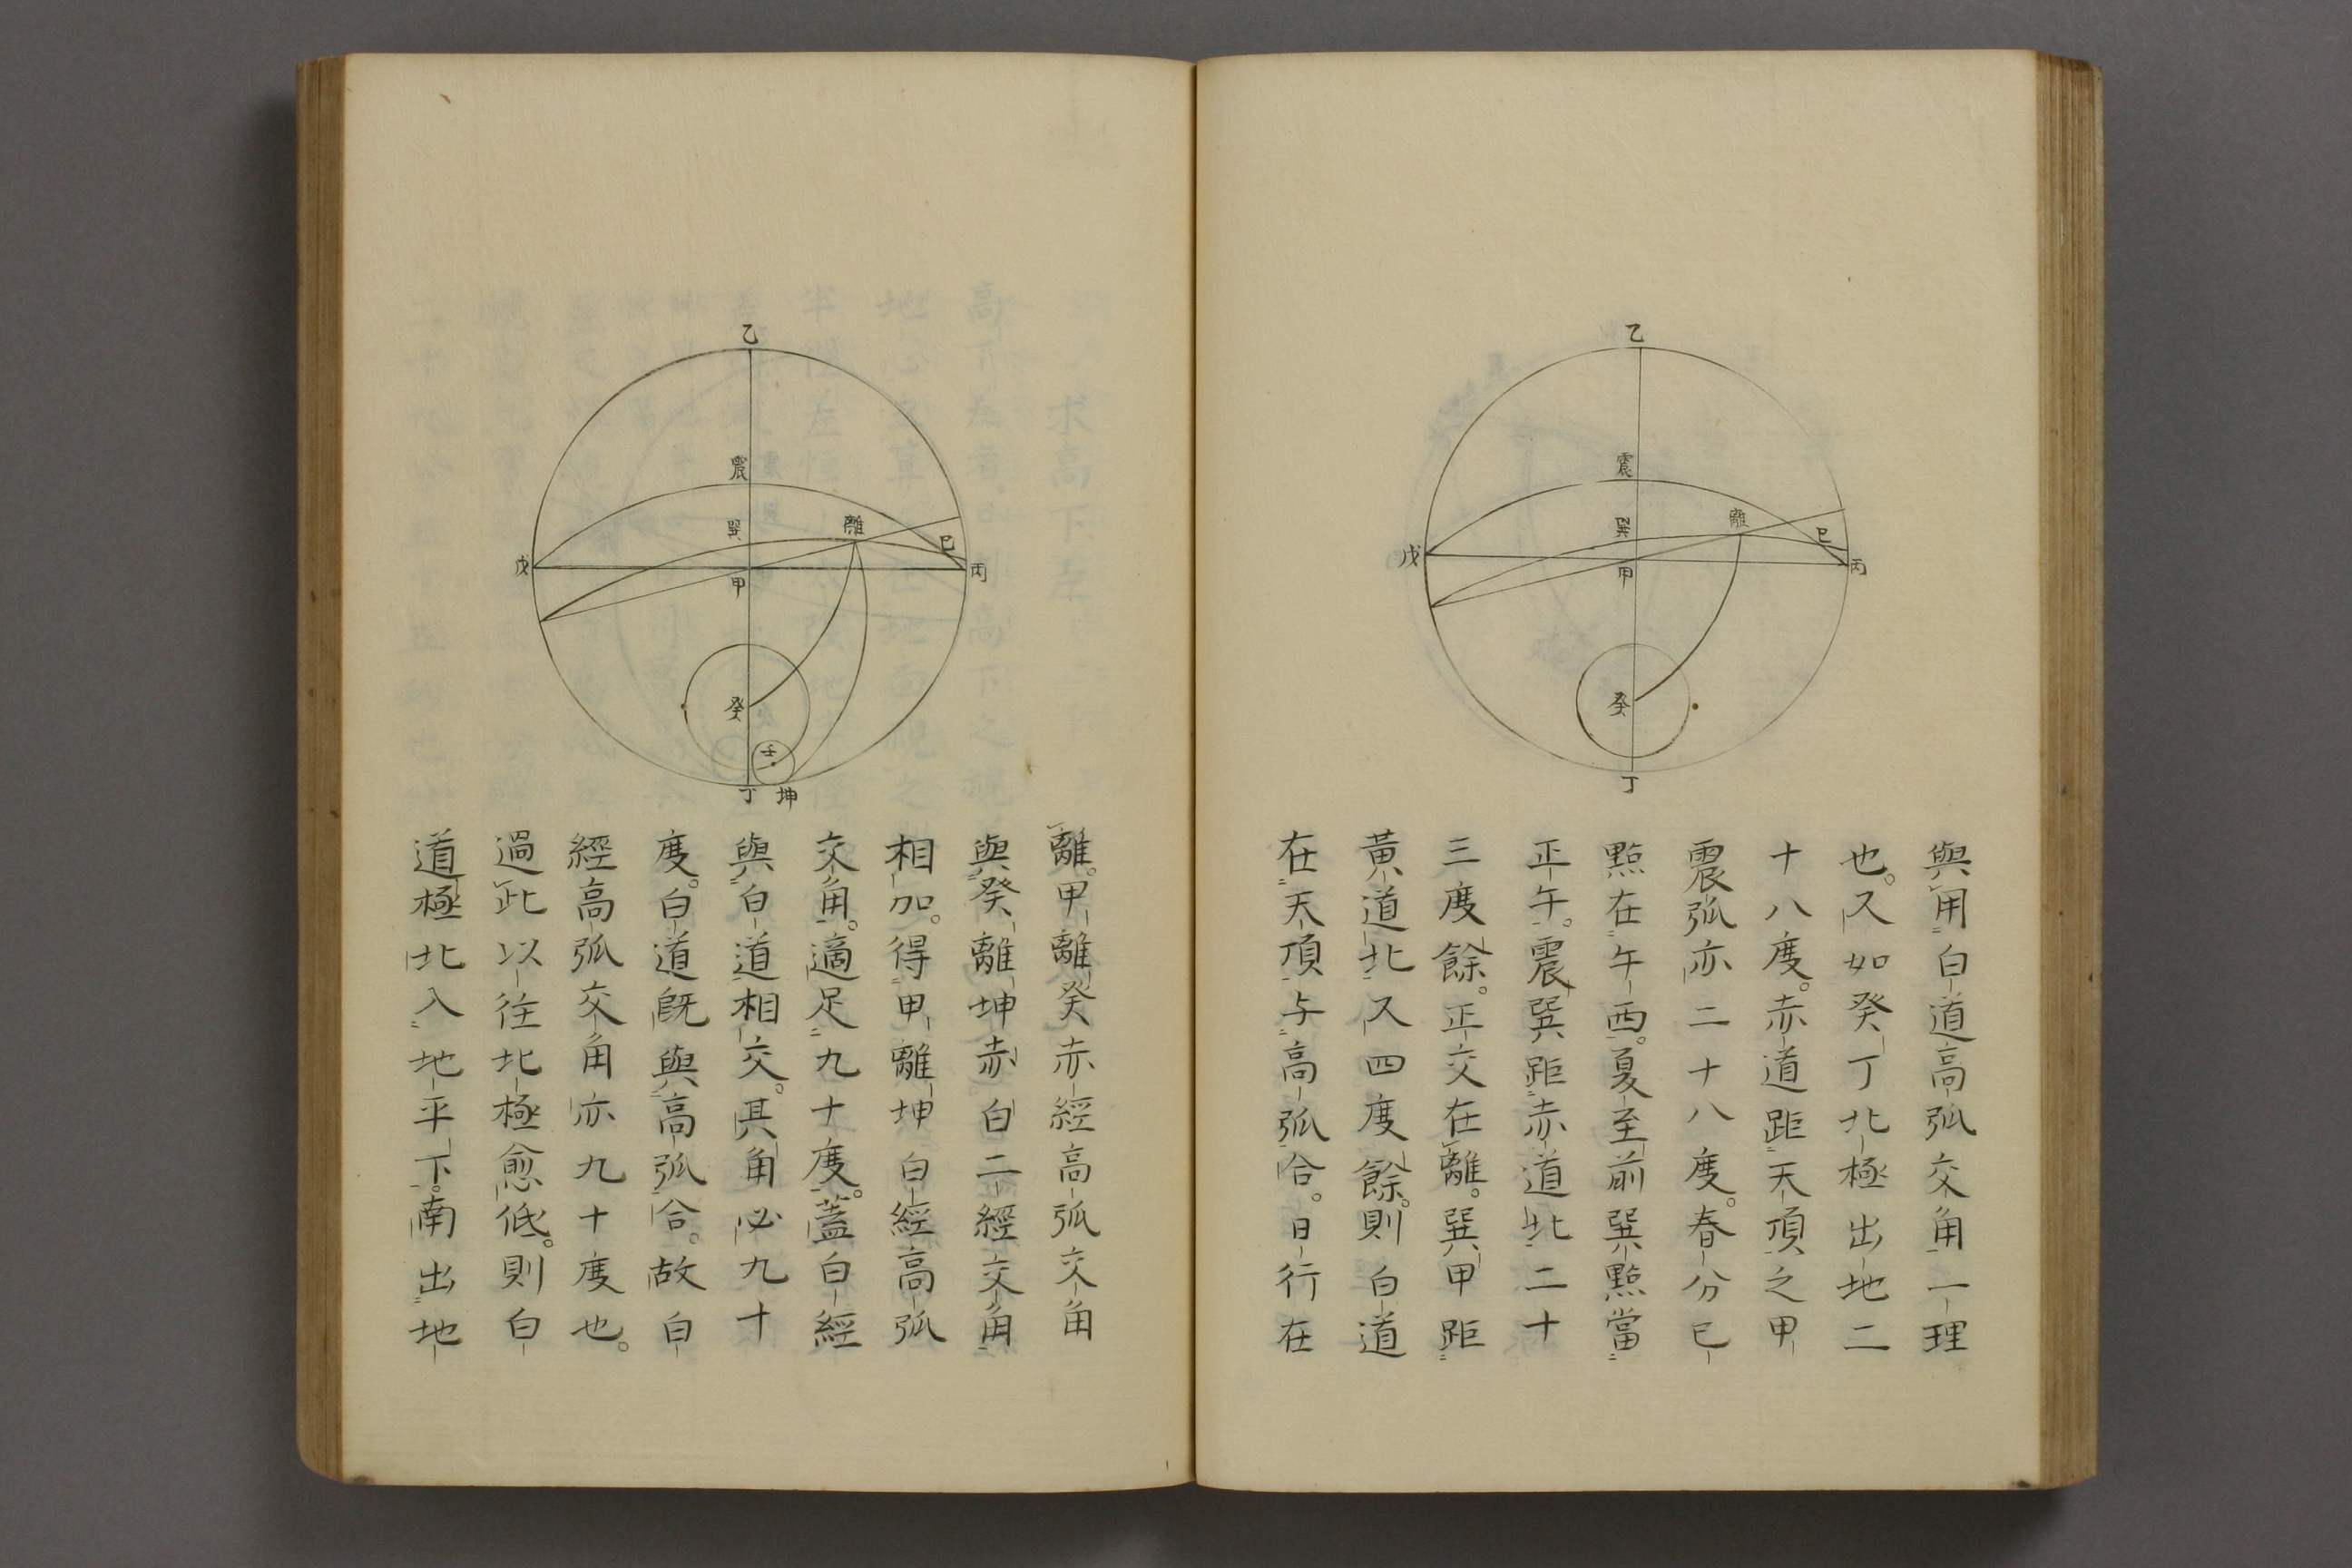 乙
震
離
巽
巳
戊
甲
丙
癸
丁
與用白道高弧交角一理
也。又如癸丁北極出地二
十八度。赤道距天頂之甲
震弧亦二十八度。春分巳
點在午西。夏至前巽點當
正午。震巽距赤道北二十
三度餘。正交在離。巽甲距
黃道北又四度餘。則白道
在天頂与高弧合。日行在
乙
震
離
巽
巳
戊
甲
丙
癸
壬
丁
坤
離。甲離癸赤經高弧交角
與癸離坤赤白二經交角
相加。得甲離坤白經高弧
交角。適足九十度。蓋白經
與白道相交。其角必九十
度。白道既與高弧合。故白
經高弧交角亦九十度也。
過此以往北極愈低。則白
道極北入地平下。南出地